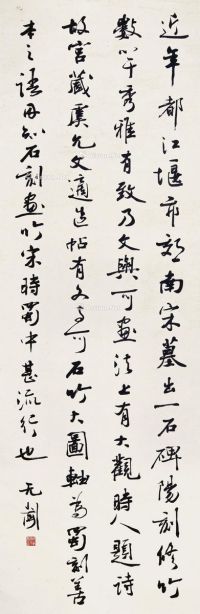 近年都江堰市郊南宋墓出一石碑阳刻修竹
数竿秀雅有致乃文與可画法上有大觀時人題詩
故宫藏虞允文適造帖有文与可石竹大圖軸為蜀刻善
本之語因知石刻画竹宋時蜀中甚流行也
无闻